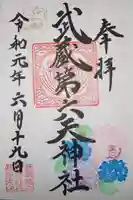 奉拝
武蔵第六天神社
令和元年六月十九日